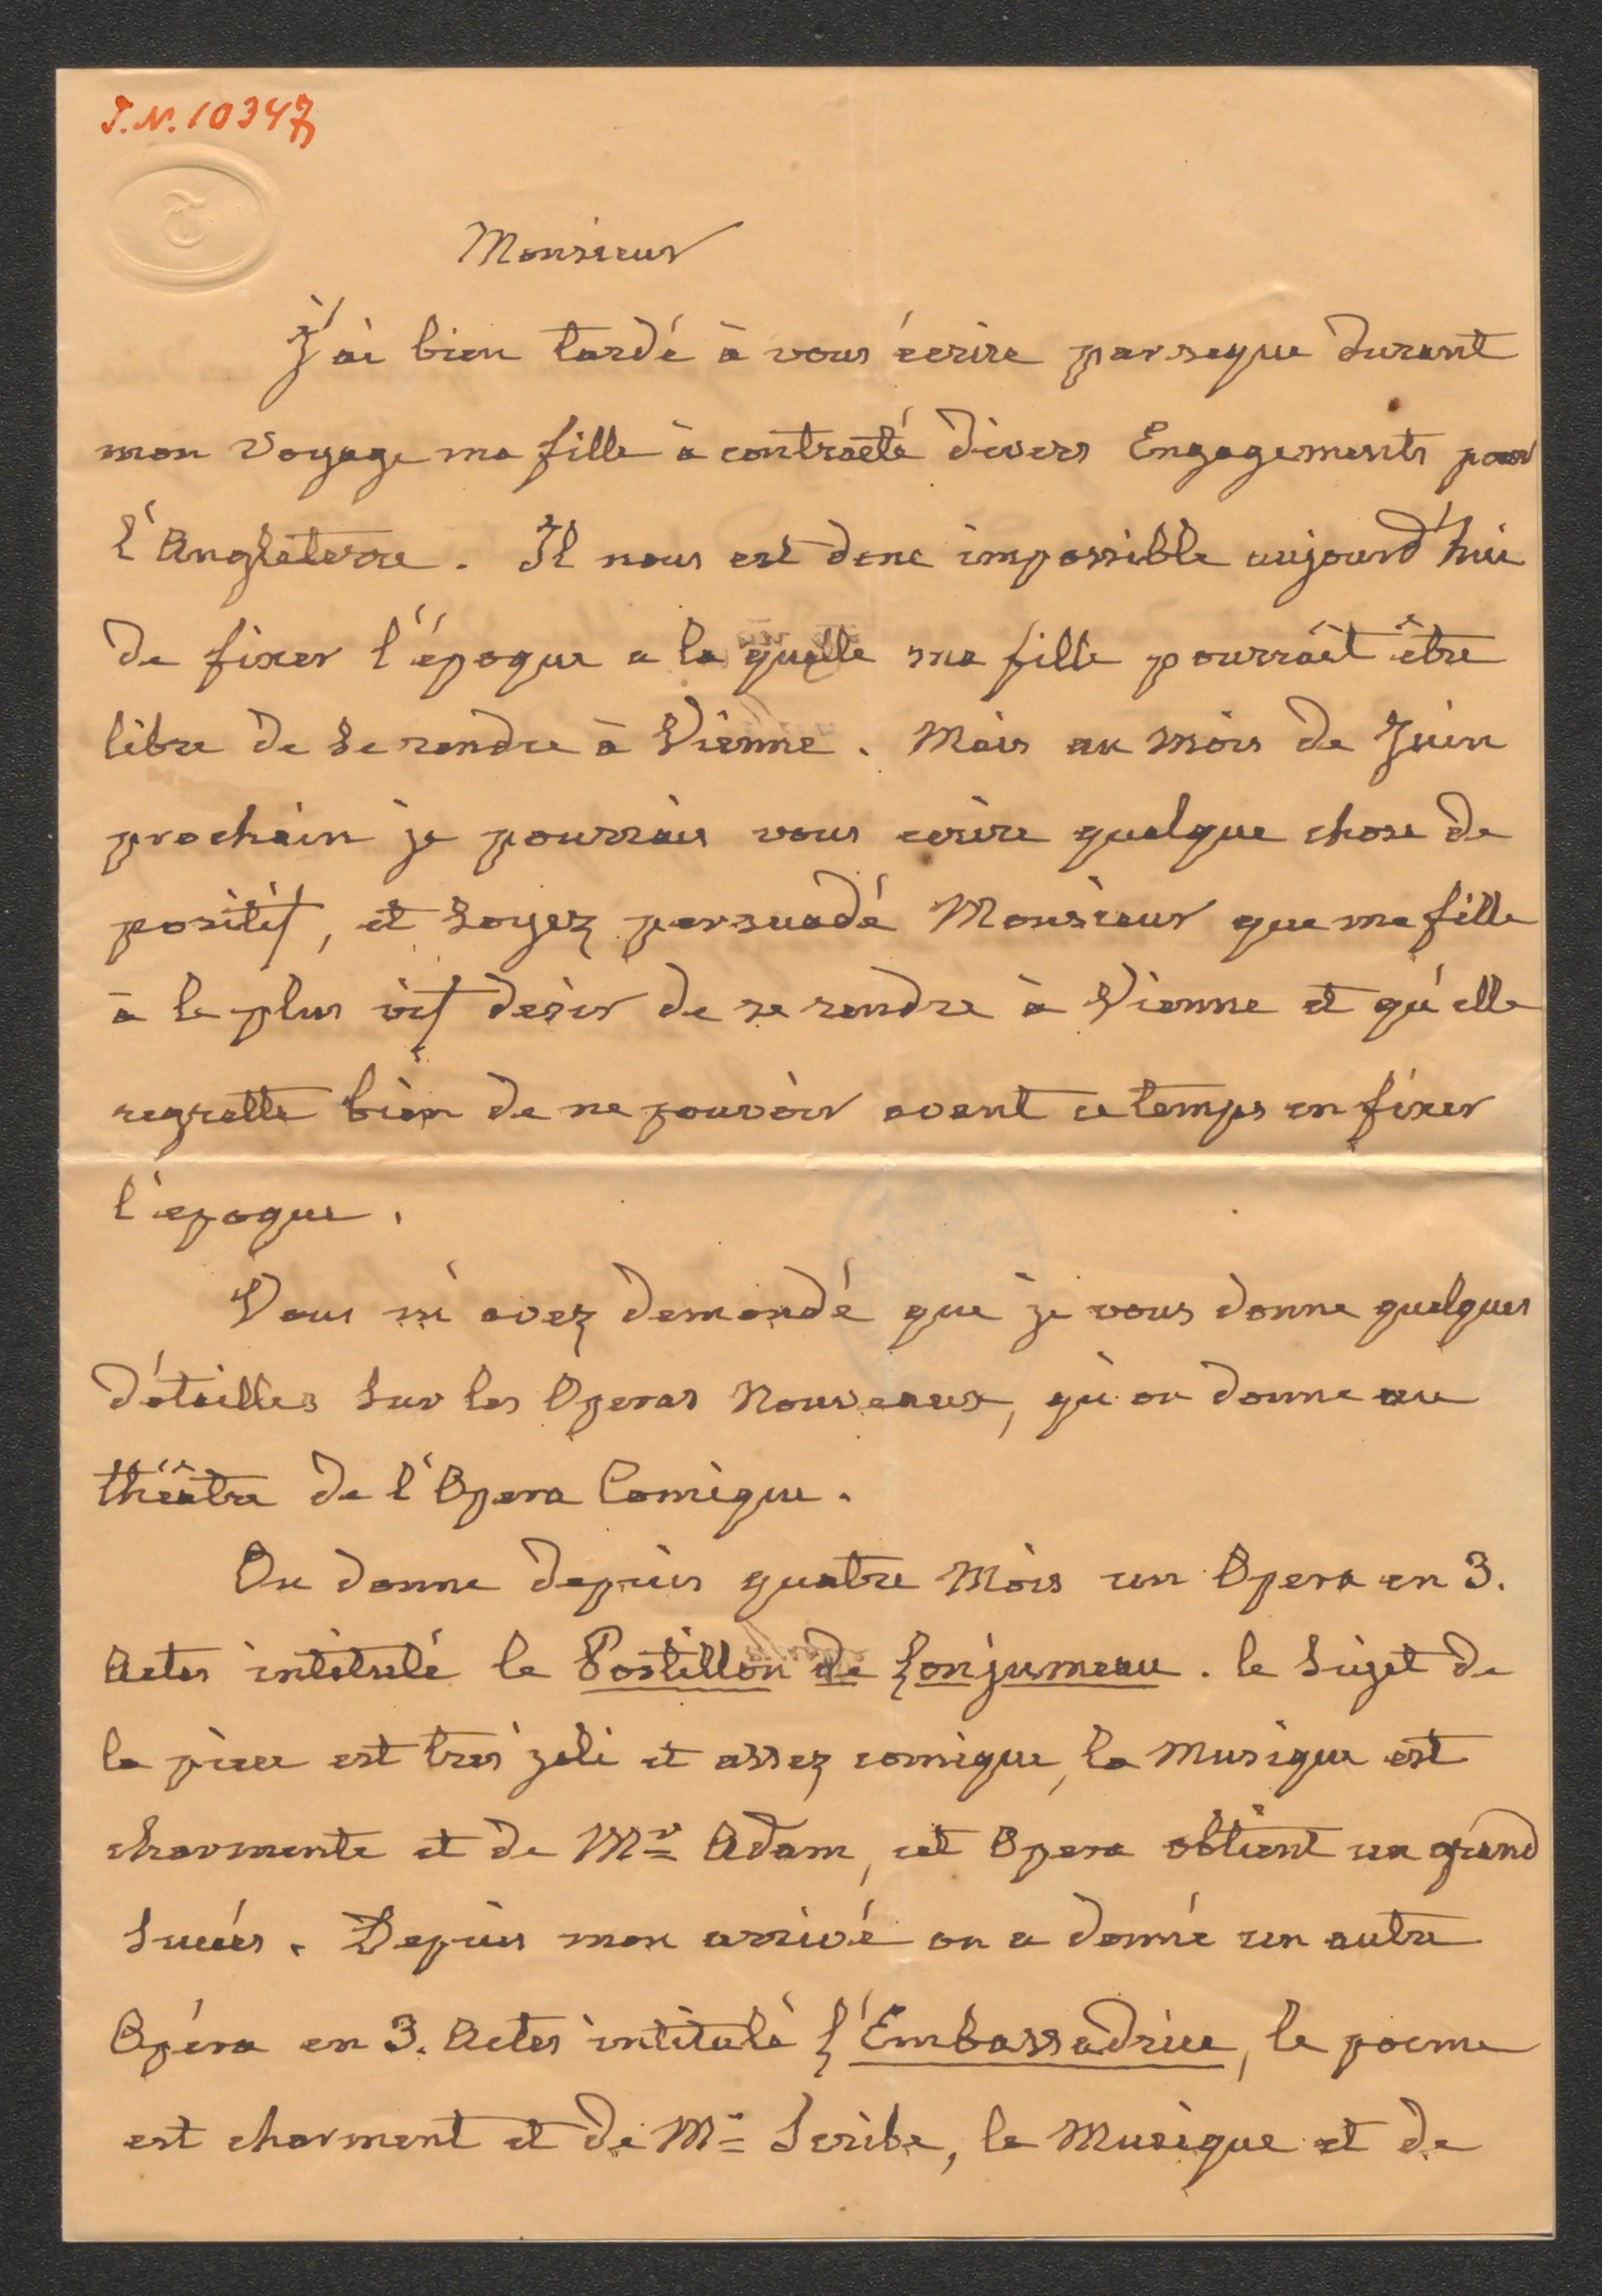 I.N. 10347
T
Monsieur
J'ai bien tardé à vous écrire parseque durant
mon Voyage ma fille à contracté divers Engagements pour
l'Angleterre. Il nous est donc impossible aujourd'hui
de fixer l'époque a la quelle ma fille pourrait être
libre de se rendre à Vienne. Mais au mois de Juin
prochain je pourrais vous ecrire quelque chose de
positif, et soyez persuadé Monsieur que ma fille
à le plus vif desir de se rendre à Vienne et qu'elle
regrette bien de ne pouvoir avant ce temps en fixer
l'epoque.
Vous m'avez demandé que je vous donne quelques
détailles sur les Operas Nouveaux, qu'on donne au
théâtre de l'Opera Comique.
On donne depuis quatre Mois un Opera en 3.
Actes intitulé le Postillon de Lonjumeau. le Sujet de
la pièce est très joli et assez comique, la Musique est
charmente et de Mr Adam, cet Opera obtient un grand
Succés. Depuis mon arrivé on a donné un autre
Opéra en 3. Actes intitulé l'Embassadrice, le poeme
est charment et de Mr Scribe, la Musique et de